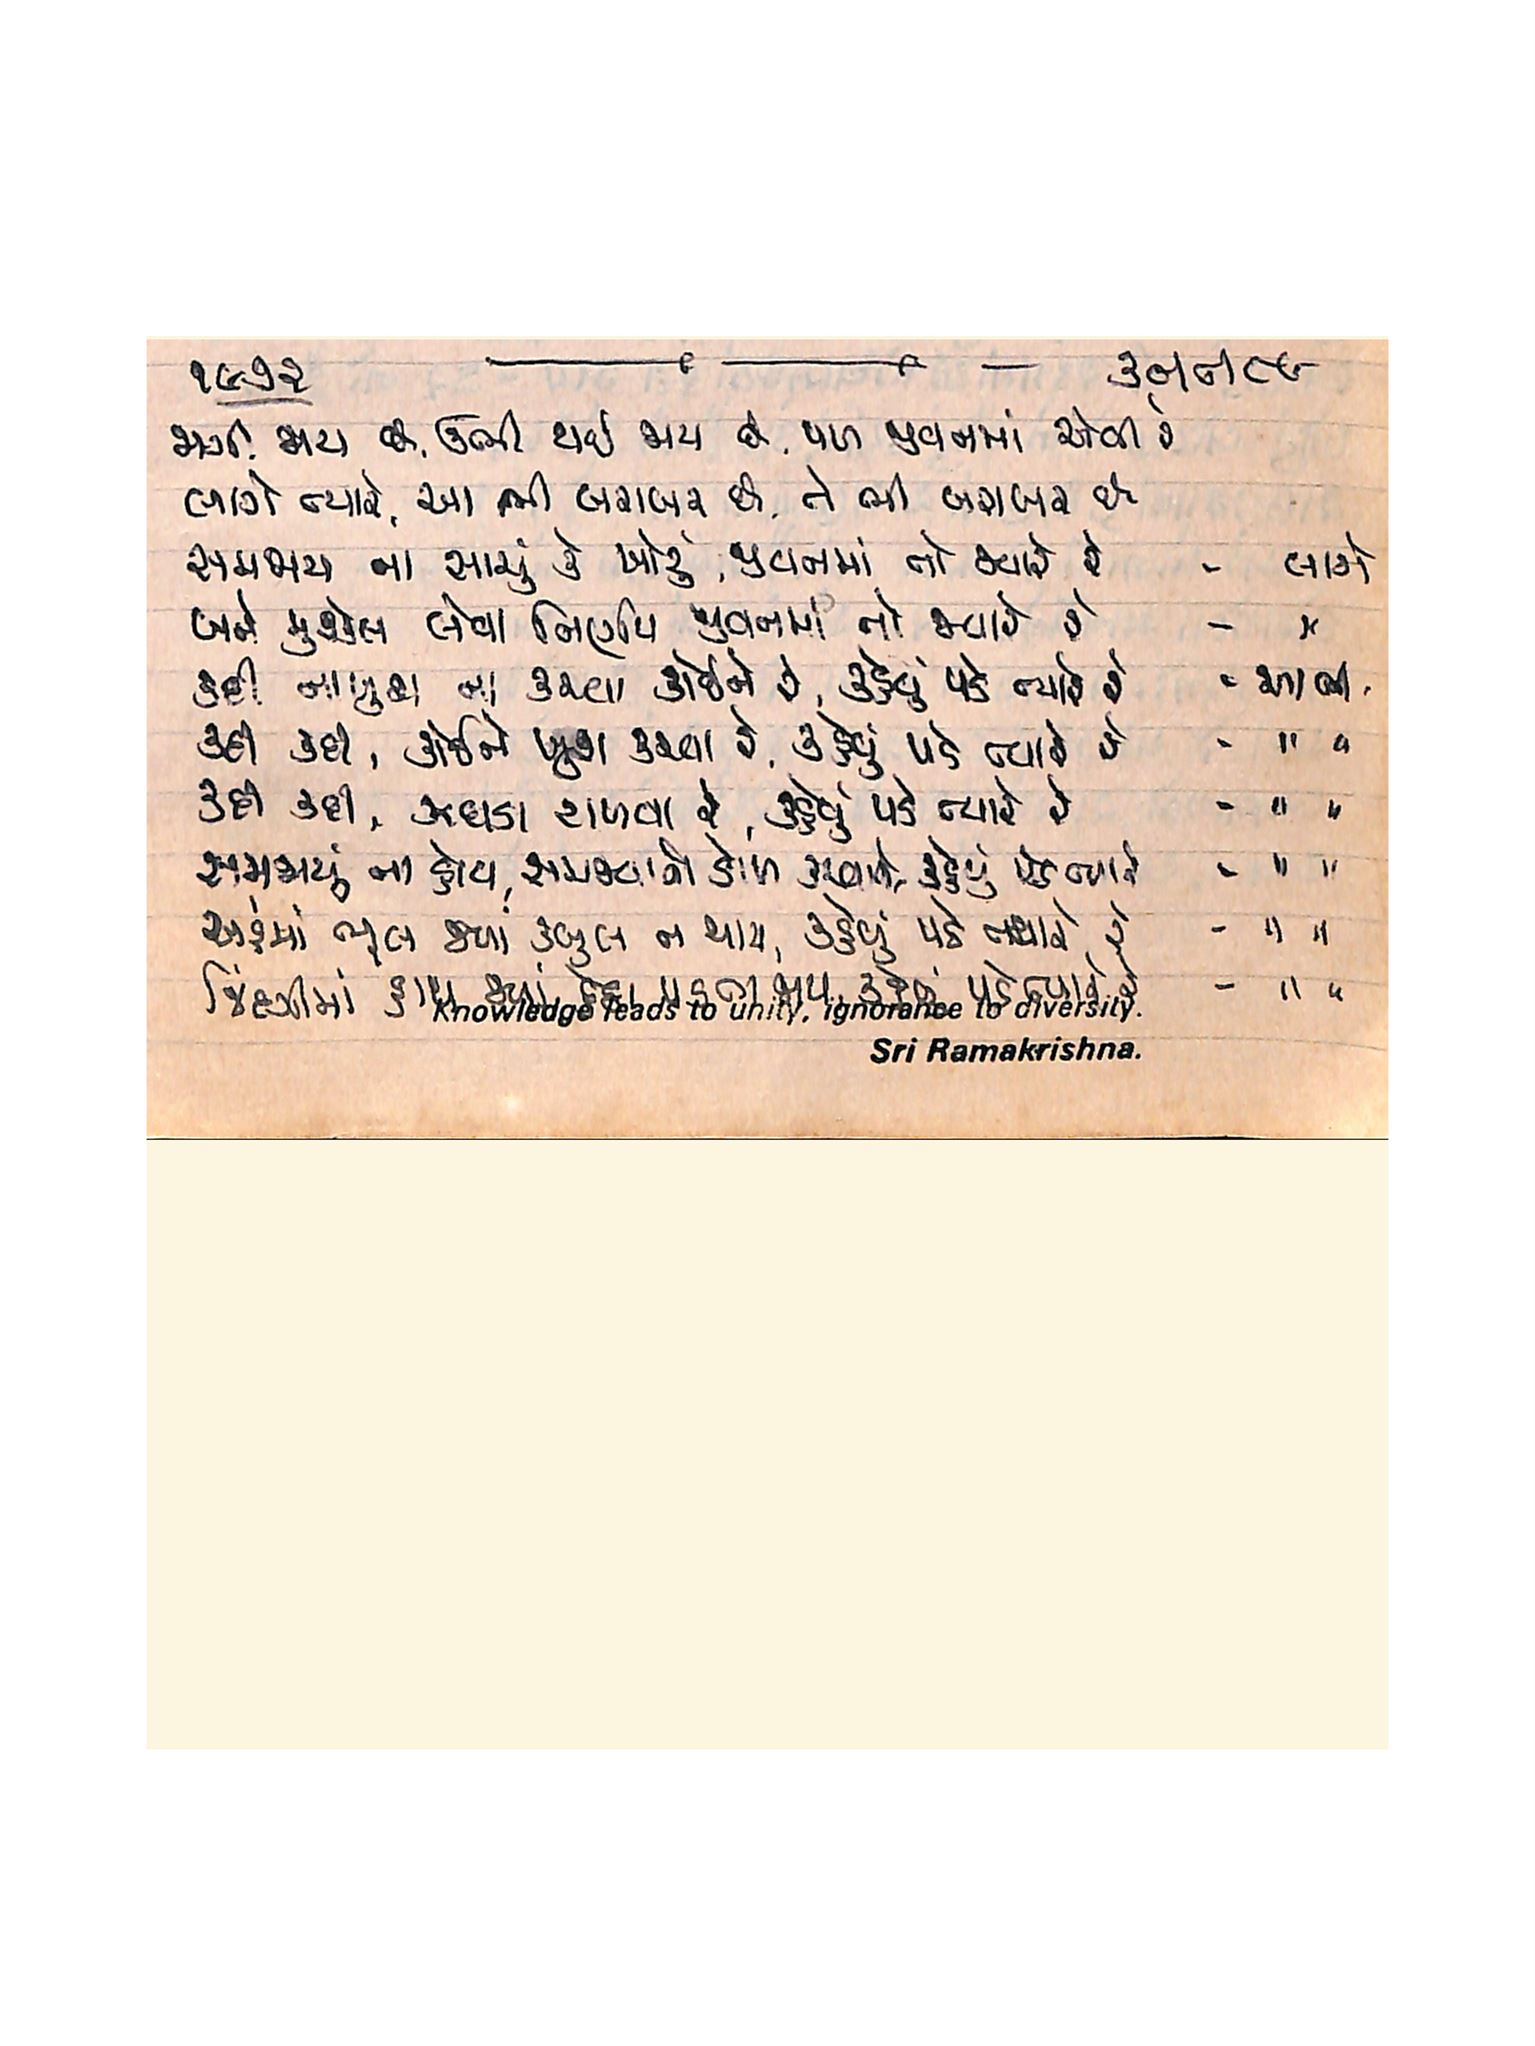 ૧૯૭૨
જાગી જાય છે, ઉભી થઈ જાય છે, પળ જીવનમાં એવી રે
લાગે ત્યારે, આ ભી બરાબર છે, તે ભી બરાબર છે
સમજાય ના સાચું કે ખોટું, જીવનમાં તો જ્યારે રે - લાગે
બને મુશ્કેલ લેવા નિર્ણય જીવનમાં તો જ્યારે રે - "
કદી નાખુશ ના કરવા કોઈને રે, કહેવું પડે ત્યારે રે - આ ભી.
કદી કદી, કોઈને ખુશ કરવા રે, કહેવું પડે ત્યારે રે - " "
કદી કદી, ઝઘડા ટાળવા રે, કહેવું પડે ત્યારે રે - " "
સમજાયું ના હોય, સમજવાનો ડોળ કરવાને, કહેવું પડે ત્યારે - " "
અહંમાં ભૂલ જ્યાં કબુલ ન થાય, કહેવું પડે ત્યારે રે - " "
જિંદગીમાં કામ જ્યાં પડતા જાય, કહેવું પડે ત્યારે રે - " "
Knowledge leads to unity, ignorance to diversity.
Sri Ramakrishna.